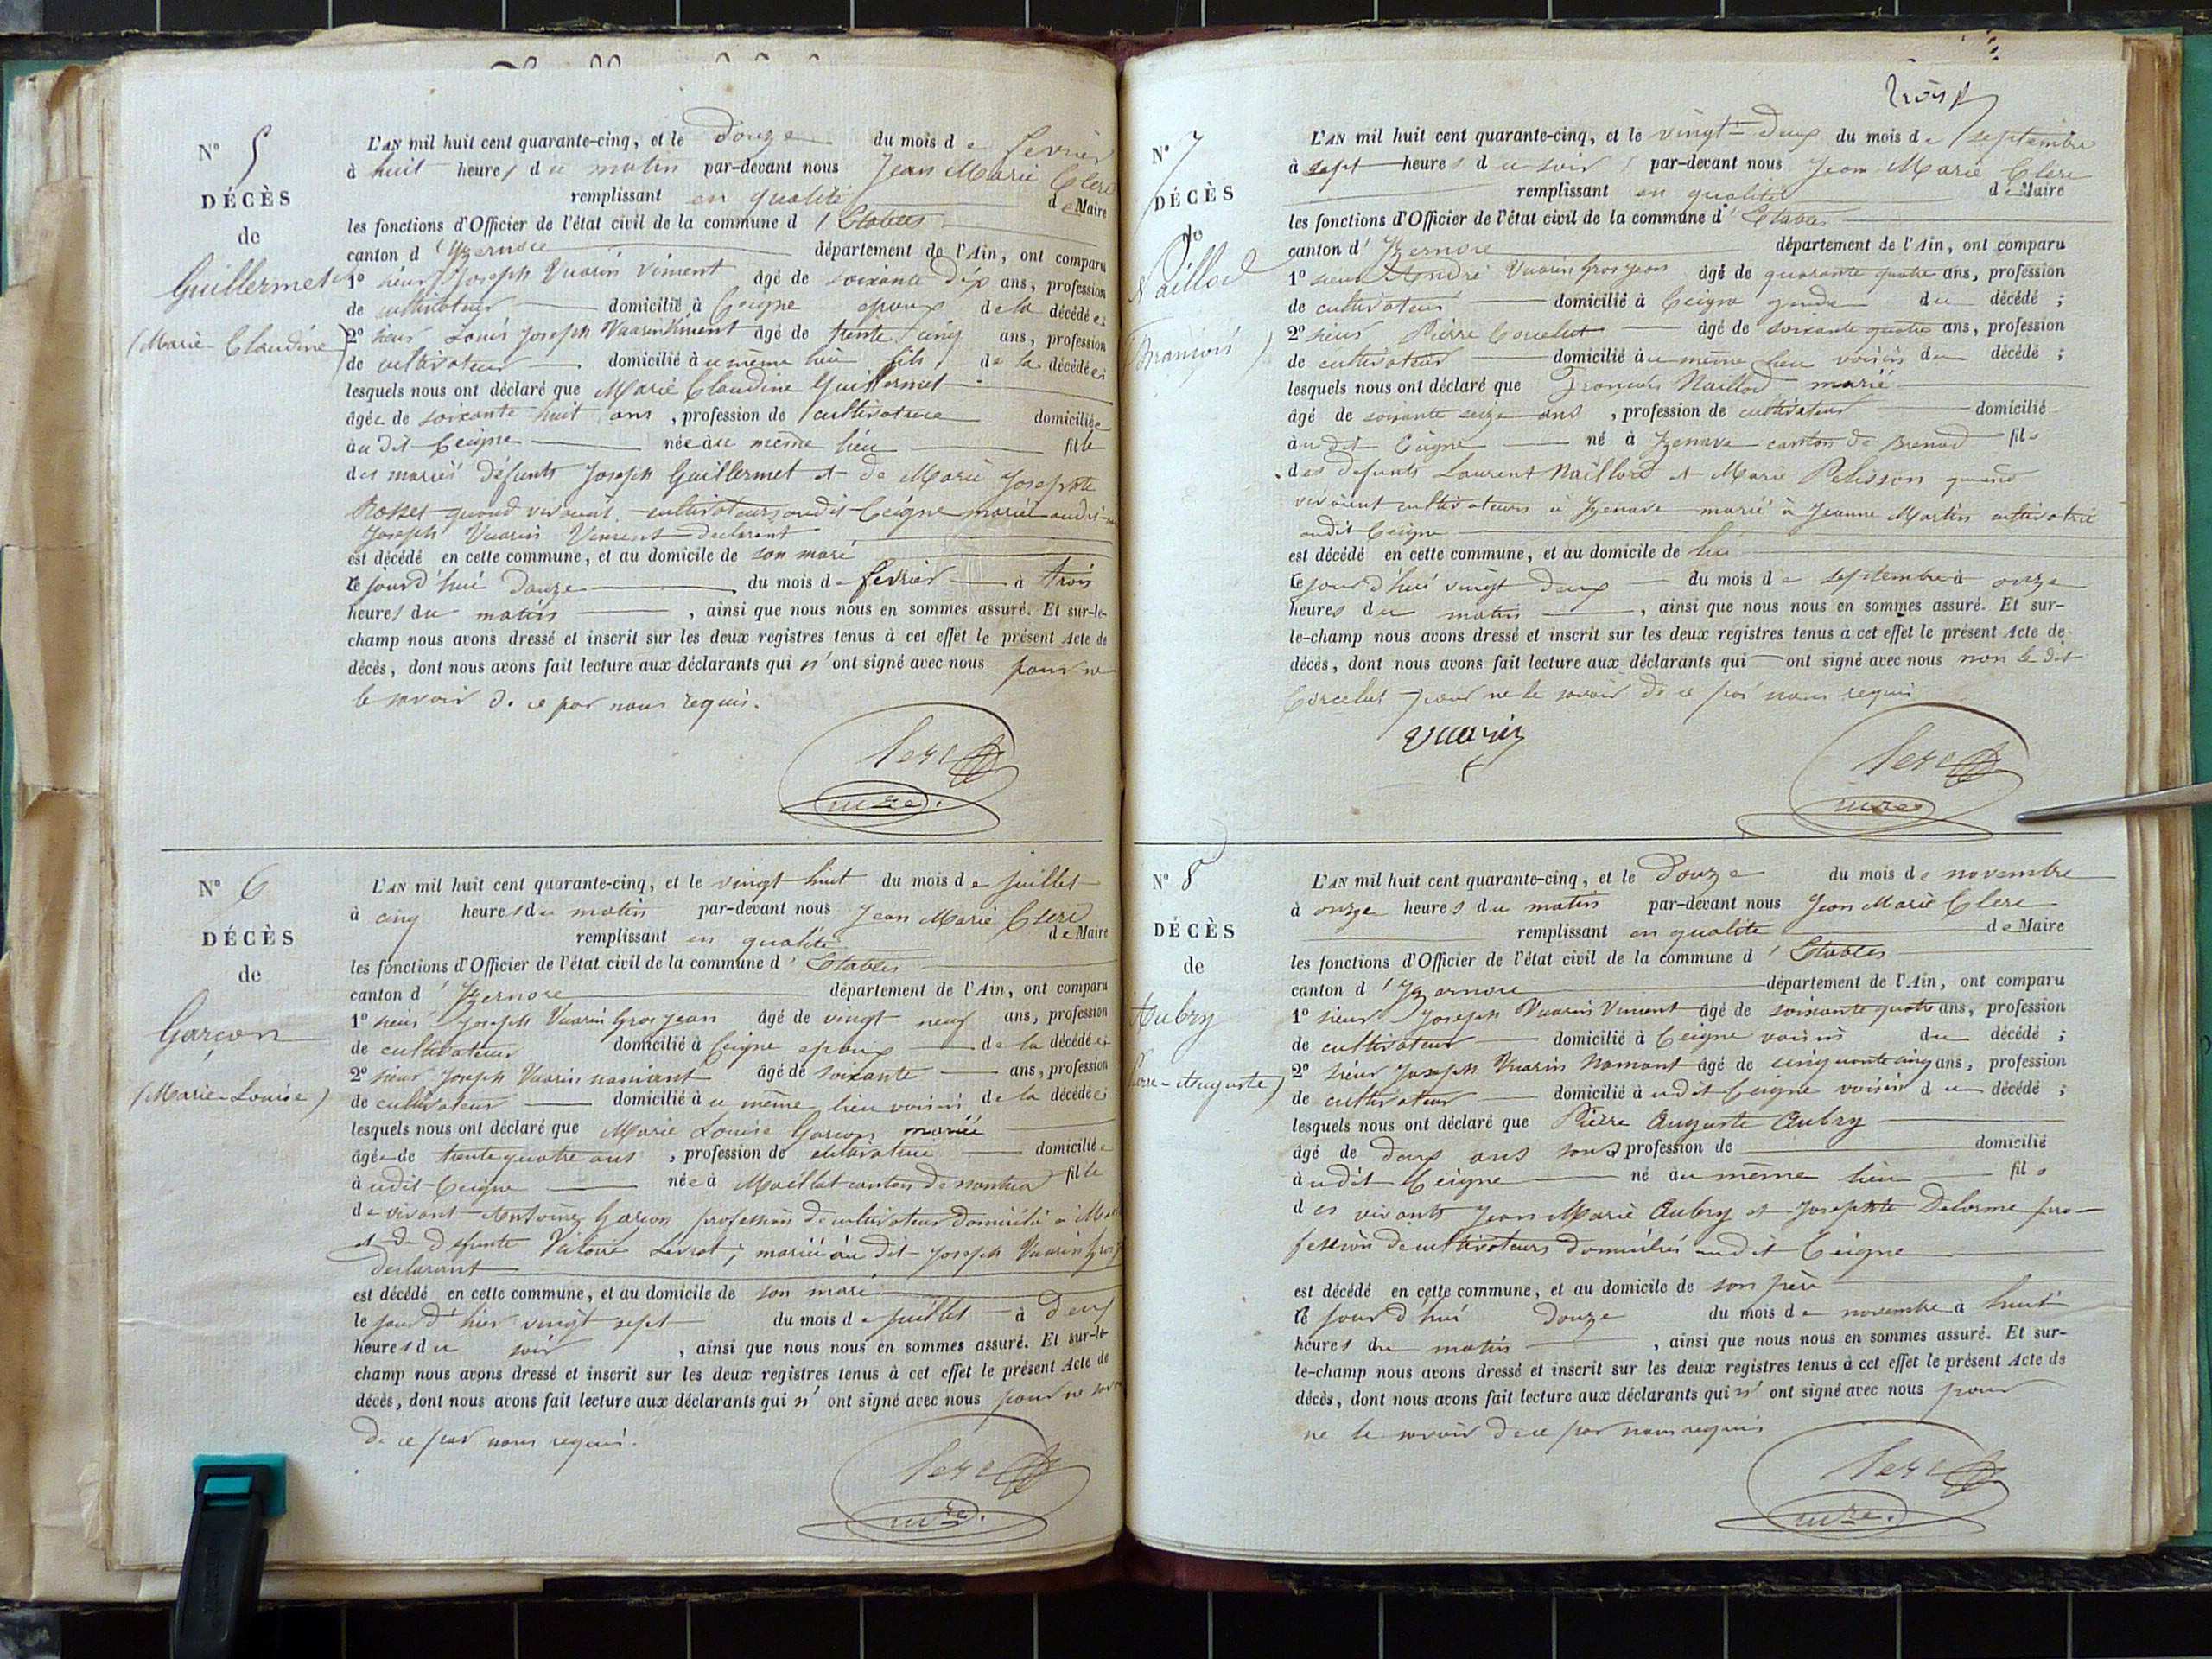 N° 5
DÉCÈS
de
Guillermet
(Marie Claudine)
L'AN mil huit cent quarante-cinq, et le Douze du mois de fevrier
à huit heures du matin par-devant nous Jean Marie Clerc
remplissant en qualité de Maire
les fonctions d'Officier de l'état civil de la commune d'Etables
canton d'Yzernore département de l'Ain, ont comparu
1° sieur Joseph Vuarin Viment âgé de soixante dix ans, profession
de cultivateur domicilié à Ceigne epoux de la décédée;
2° sieur Louis Joseph Vuarin Viment âgé de trente cinq ans, profession
de cultivateur domicilié au meme lieu fils de la décédée;
lesquels nous ont déclaré que Marie Claudine Guillermet
âgée de soixante huit ans, profession de cultivatrice domiciliée
au dit Ceigne née au meme lieu fille
des mariés défunts Joseph Guillermet et de Marie Josephte
Rosset quand vivaient cultivateurs audit Ceigne mariée audit
Joseph Vuarin Viment declarant
est décédé en cette commune, et au domicile de son mari
le jourd'hui Douze du mois de fevrier à trois
heures du matin, ainsi que nous nous en sommes assuré. Et sur-le-
champ nous avons dressé et inscrit sur les deux registres tenus à cet effet le présent Acte de
décès, dont nous avons fait lecture aux déclarants qui n'ont signé avec nous pour ne
le savoir de ce par nous requis.
Clerc
mre.
N° 6
DÉCÈS
de
Garçon
(Marie-Louise)
L'AN mil huit cent quarante-cinq, et le vingt huit du mois de juillet
à cinq heures du matin par-devant nous Jean Marie Clerc
remplissant en qualité de Maire
les fonctions d'Officier de l'état civil de la commune d'Etables
canton d'Yzernore département de l'Ain, ont comparu
1° sieur Joseph Vuarin Gros jean âgé de vingt neuf ans, profession
de cultivateur domicilié à Ceigne epoux de la décédée;
2° sieur Joseph Vuarin âgé de soixante ans, profession
de cultivateur domicilié au même lieu voisin de la décédée;
lesquels nous ont déclaré que Marie Louise Garçon mariée
âgée de trente quatre ans, profession de cultivatrice domiciliée
à udit Ceigne née à Maillat canton de nantua fille
de vivant Antoine Garçon profession de cultivateur domicilié à
et de défunte Victoire Levrat; mariée au dit Joseph Vuarin Gros
declarant
est décédé en cette commune, et au domicile de son mari
le jour d'hier vingt sept du mois de juillet à deux
heures du soir, ainsi que nous nous en sommes assuré. Et sur-le-
champ nous avons dressé et inscrit sur les deux registres tenus à cet effet le présent Acte de
décès, dont nous avons fait lecture aux déclarants qui n'ont signé avec nous pour ne
de ce par nous requis.
Clerc
mre.
trois
N° 7
DÉCÈS
de
Naillod
(François)
L'AN mil huit cent quarante-cinq, et le vingt-deux du mois de septembre
à sept heures du soir par-devant nous Jean Marie Clerc
remplissant en qualité de Maire
les fonctions d'Officier de l'état civil de la commune d'Etables
canton d'Yzernore département de l'Ain, ont comparu
1° sieur André Vuarin Gros jean âgé de quarante quatre ans, profession
de cultivateur domicilié à Ceigne gendre du décédé;
2° sieur Pierre Corcelut âgé de soixante quatre ans, profession
de cultivateur domicilié au même lieu voisin du décédé;
lesquels nous ont déclaré que François Naillod marié
âgé de soixante seize ans, profession de cultivateur domicilié
au dit Ceigne né à Yzenave canton de Brenod fils
des defunts Laurent Naillod et Marie Pelisson quand
vivaient cultivateurs à Yzenave marié à Jeanne Martin cultivatrice
audit Ceigne
est décédé en cette commune, et au domicile de lui
le jour d'hui vingt deux du mois de septembre à onze
heures du matin, ainsi que nous nous en sommes assuré. Et sur-
le-champ nous avons dressé et inscrit sur les deux registres tenus à cet effet le présent Acte de
décès, dont nous avons fait lecture aux déclarants qui ont signé avec nous non le dit
Corcelut pour ne le savoir de ce par nous requis
Vuarin
Clerc
mre.
N° 8
DÉCÈS
de
Aubry
Pierre-Auguste)
L'AN mil huit cent quarante-cinq, et le Douze du mois de novembre
à onze heures du matin par-devant nous Jean Marie Clerc
remplissant en qualité de Maire
les fonctions d'Officier de l'état civil de la commune d'Etables
canton d'Yzernore département de l'Ain, ont comparu
1° sieur Joseph Vuarin Viment âgé de soixante quatre ans, profession
de cultivateur domicilié à Ceigne voisin du décédé;
2° sieur Joseph Vuarin âgé de cinquante cinq ans, profession
de cultivateur domicilié à udit Ceigne voisin du décédé;
lesquels nous ont déclaré que Pierre Auguste Aubry
âgé de deux ans sans profession de domicilié
à udit Ceigne né au même lieu fils
des vivants Jean Marie Aubry et Josephte Delorme pro-
fession de cultivateurs domiciliés audit Ceigne
est décédé en cette commune, et au domicile de son père
le jour d'hui Douze du mois de novembre à huit
heures du matin, ainsi que nous nous en sommes assuré. Et sur-
le-champ nous avons dressé et inscrit sur les deux registres tenus à cet effet le présent Acte de
décès, dont nous avons fait lecture aux déclarants qui n'ont signé avec nous pour
ne le savoir de ce par nous requis
Clerc
mre.